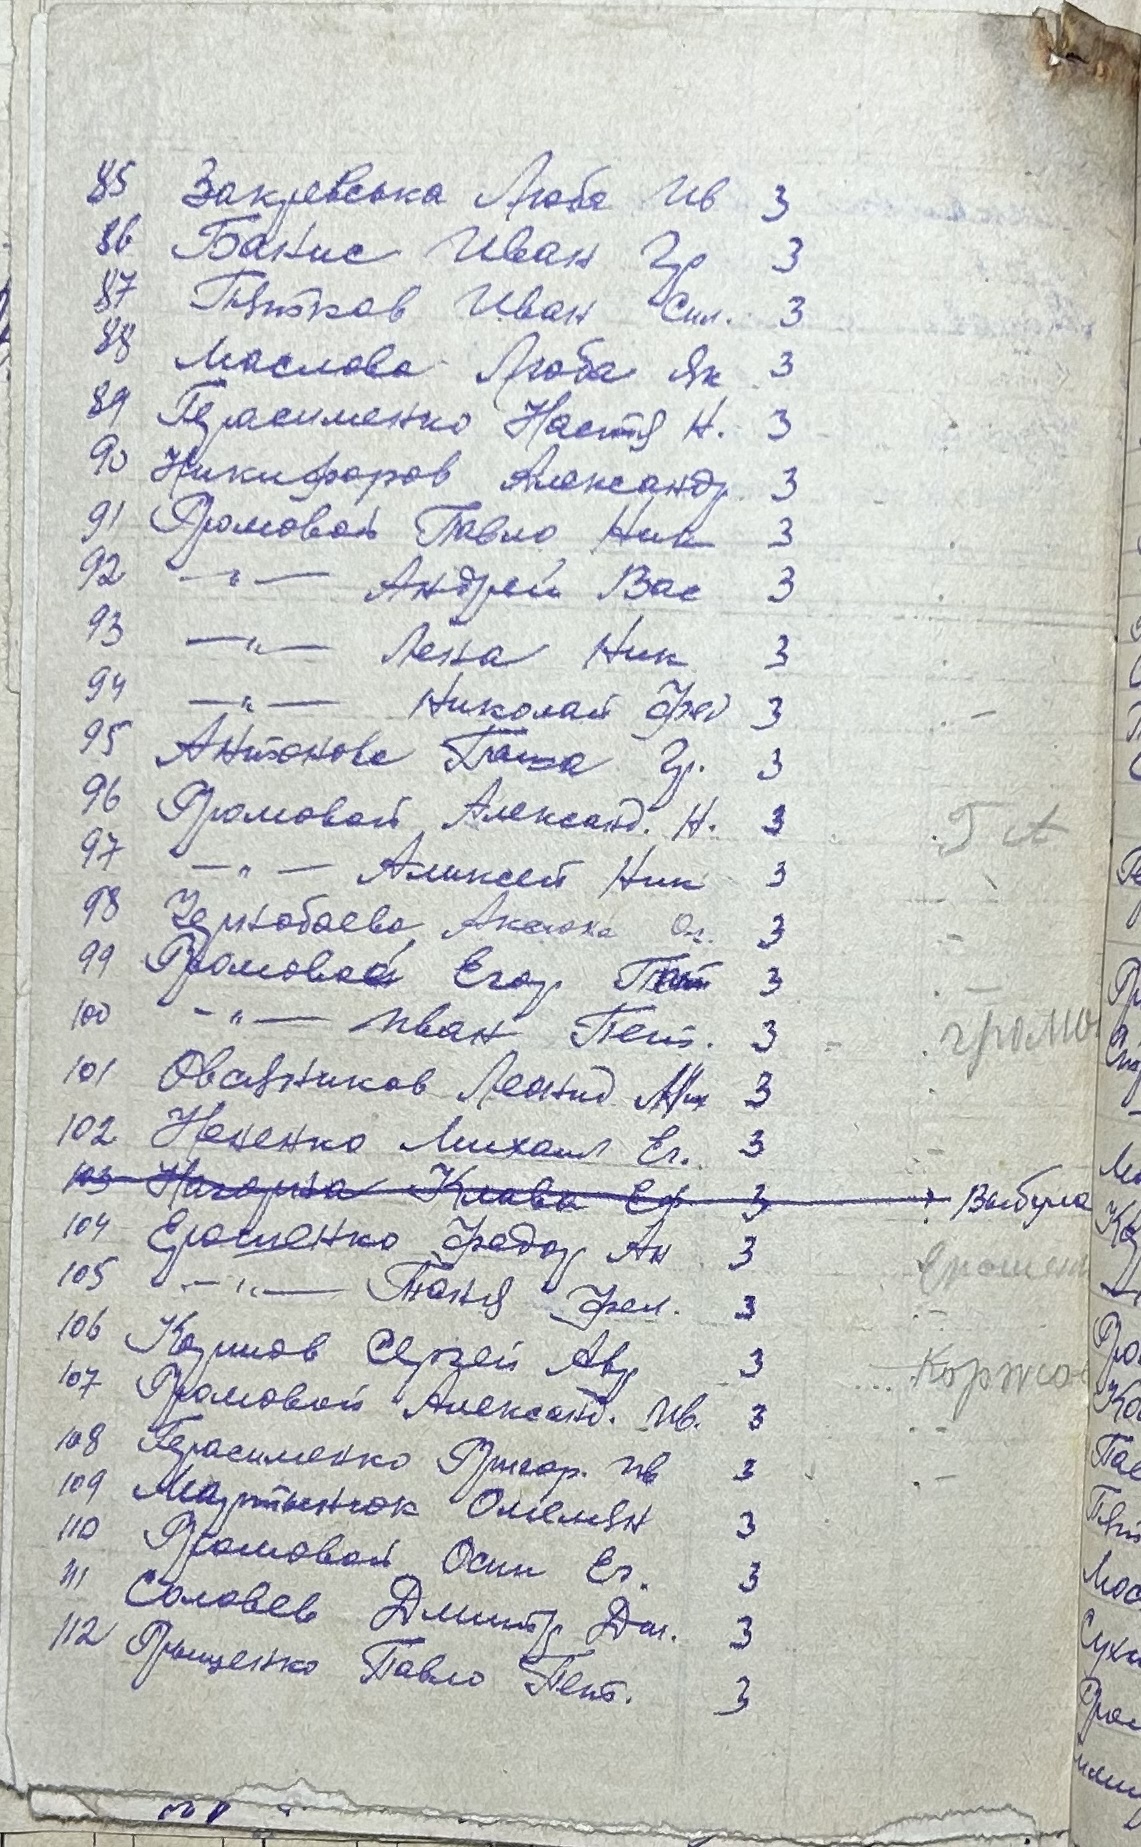 85 Закревська Люба Ив 3
86 Банис Иван Гр 3
87 Пятков Иван Сил. 3
88 Маслова Люба Як 3
89 Герасименко Настя Н. 3
90 Никифоров Александр. 3
91 Громовой Павло Ник 3
92 —"— Андрей Вас 3
93 —"— Лена Ник 3
94 —"— Николай Фед 3
95 Антонова Паша Гр. 3
96 Громовой Александ. Н. 3 ГА
97 —"— Алексей Ник 3
98 Чернобаева Аксюха Ол. 3
99 Громовой Егор Пет 3
100 —"— Иван Пет. 3 громо
101 Овсяников Леонид Мих 3
102 Нененко Михаил Ег. 3
103 Клава Еф 3 Выбула
104 Ерошенко Федор Ан 3 Ерошен
105 —"— Таня Фед. 3
106 Сергей Авр 3 Коржо
107 Громовой Александ. Ив. 3
108 Герасименко Григор. Ив 3
109 Мартынюк Омелян 3
110 Громовой Осип Ег. 3
111 Соловев Дмитр Дм. 3
112 Грищенко Павло Пет. 3